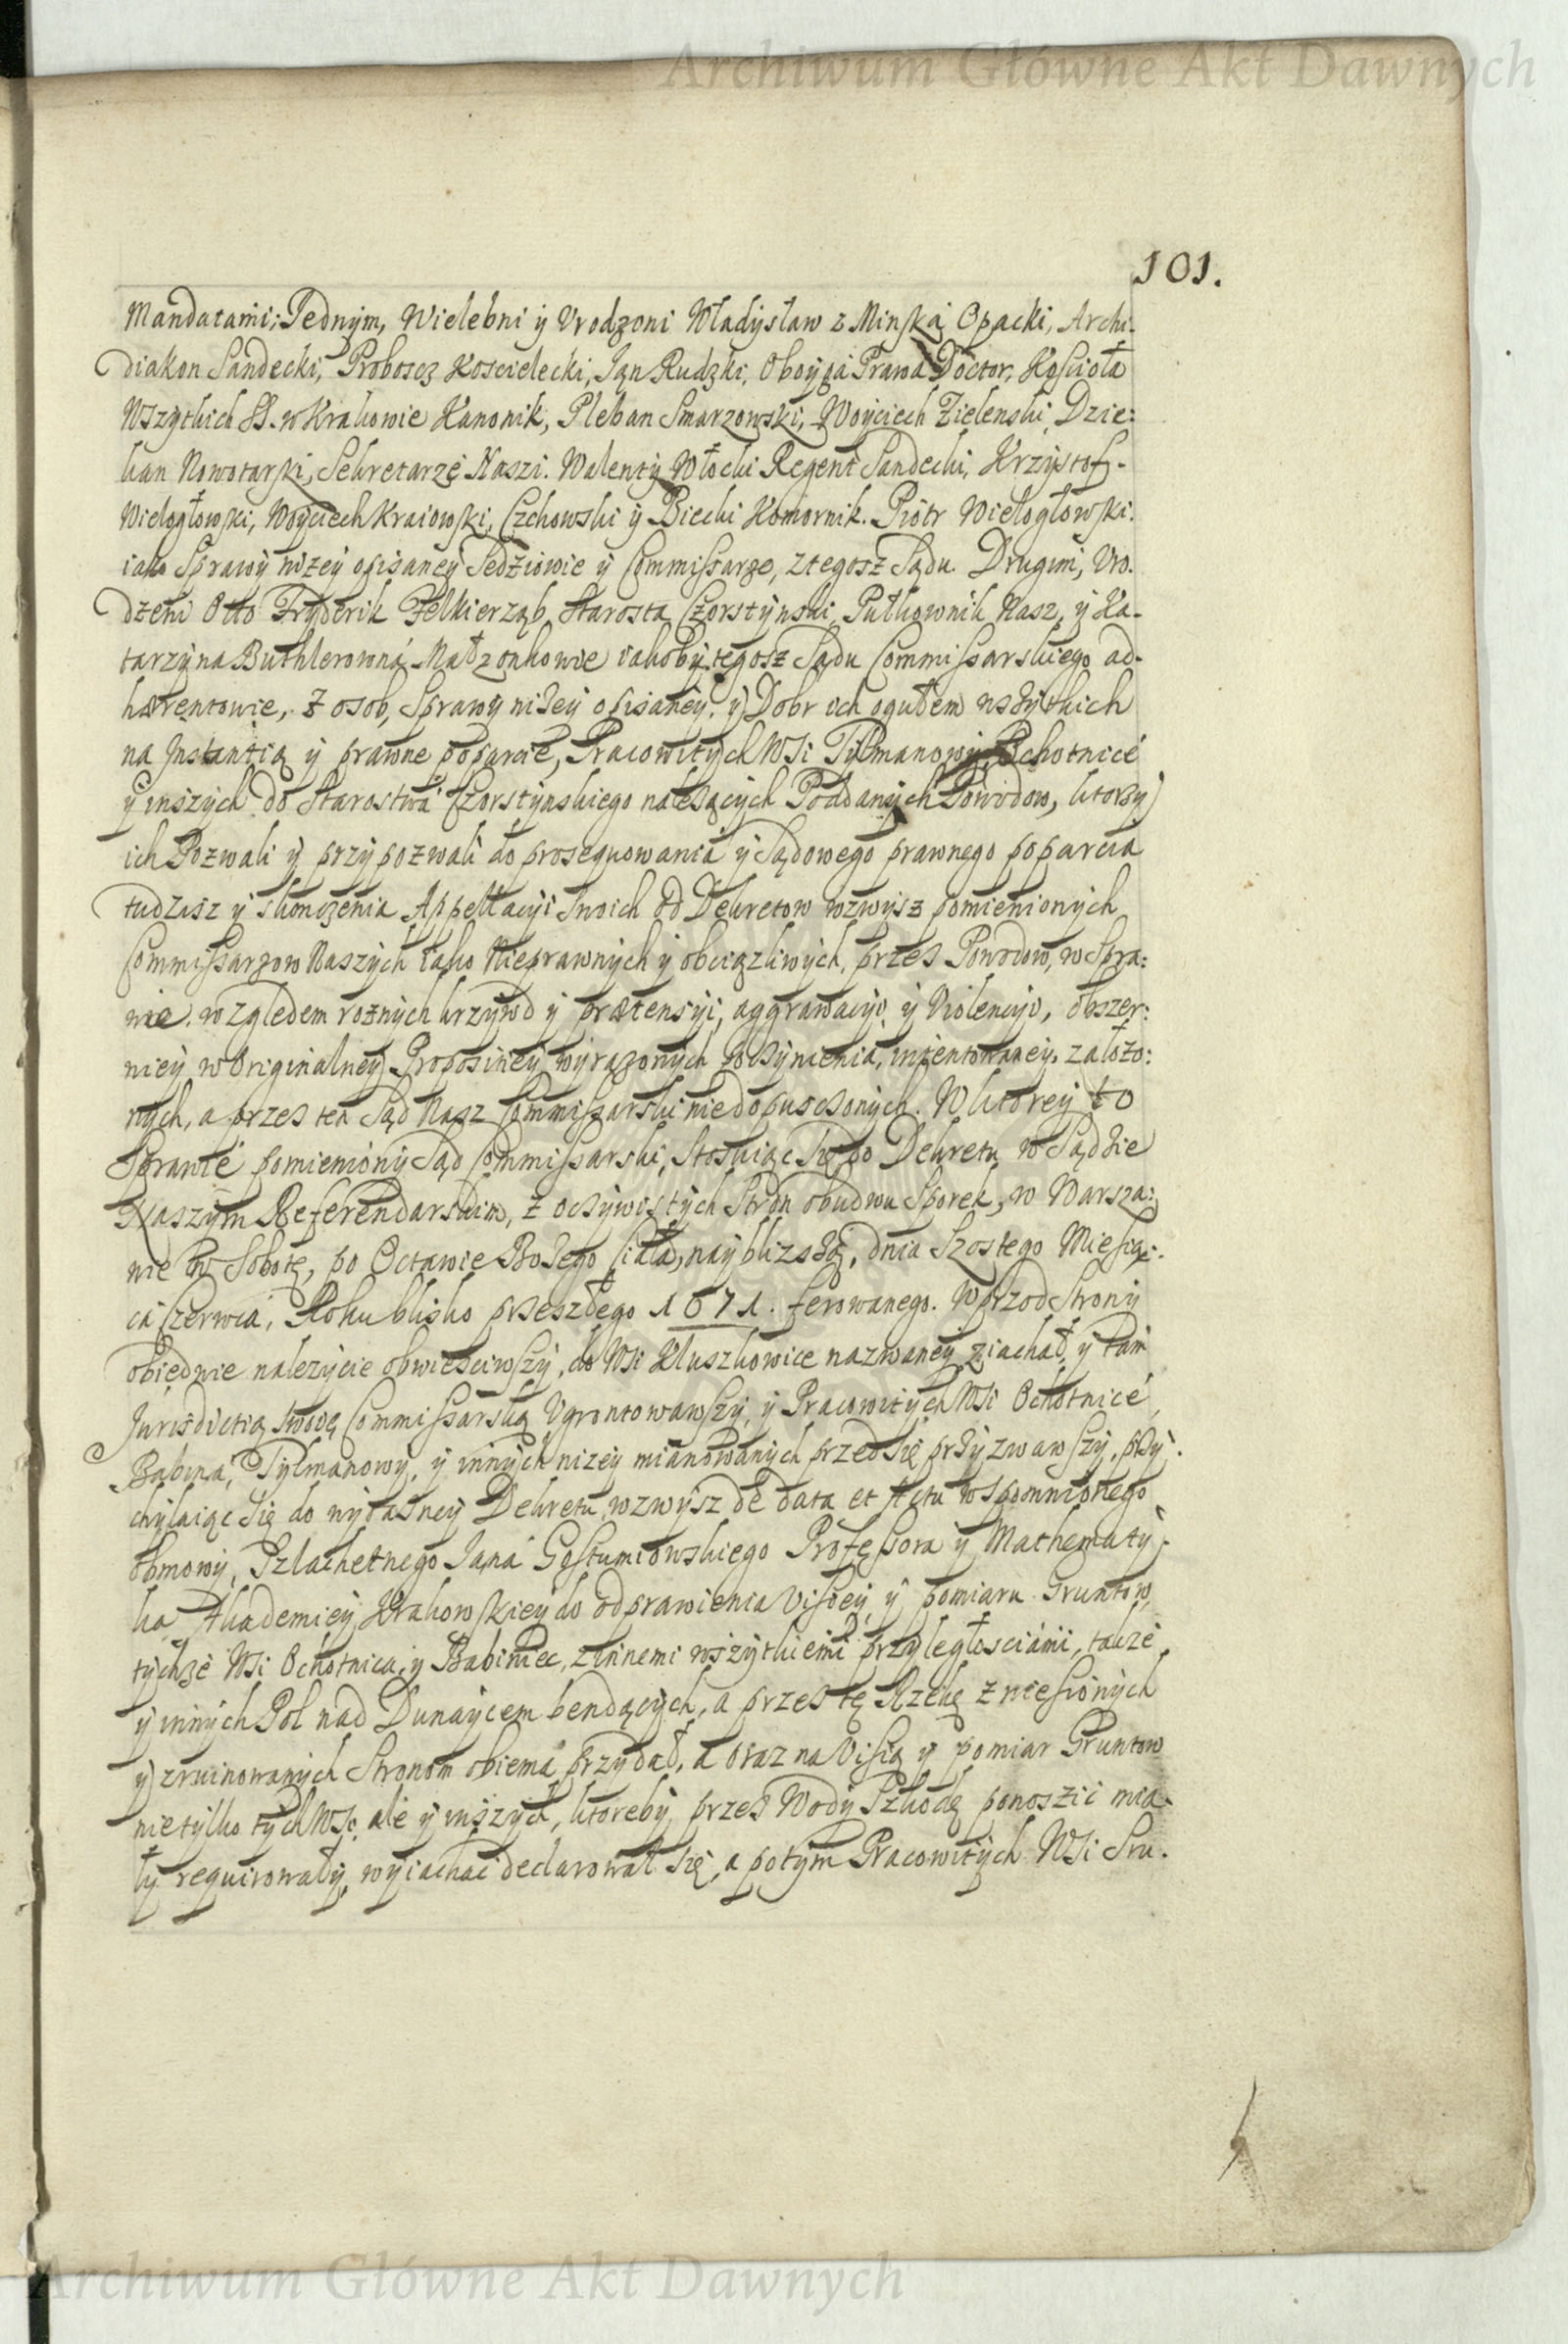 Archiwum Główne Akt Dawnych
101.
Mandatami; Jednym, Wielebni ÿ Vrodzoni Władysław z Minska Opacki, Archi-
diakon Sandecki, Proboscz Koscielecki, Jan Rudzki, Oboyga Prawa Doctor, Kościoła
Wszytkich SS. w Krakowie Kanonik, Pleban Smarzowski, Woyciech Zielenski, Dzie:
kan Nowotarski, Sekretarze Naszi. Walenty Włocki Regent Sandecki, Krzysztof
Wielogłowski, Woyciech Kraiowski, Czchowski ÿ Biecki Komornik. Piotr Wielogłowski:
iako Sprawy niżey opisaney Sędziowie ÿ Commissarze, z tegosz Sądu. Drugim, Vro.
dzeni Otto Fryderik Felkierząb, Starosta Czorstynski, Pułkownik Nasz, ÿ Ka-
tarzyna Buthlerowna Małzonkowie iakoby tegosz Sądu Commissarskiego ad-
hærentowie, z osob, Sprawy niżey opisaney, ÿ Dobr ich ogułem wszytkich
na Instantią ÿ prawne poparcie, Pracowitych WSi Tylmanowy, Ochotnice
ÿ inszych do Starostwa Czorstynskiego należących Poddanych Powodow, ktorzy
ich Pozwali ÿ przypozwali do prosequowania ÿ Sądowego prawnego poparcia
tudzisz ÿ skonczenia Appellacyi Swoich od Dekretow wzwysz pomienionych
Commissarzow Naszych iako Nieprawnych ÿ obciązliwych, przes Powodow, w Spra:
wie. względem rożnych krzywd ÿ prætensyi, aggrawacyi ÿ Violencyi, obszer:
niey w Originalney Propositiey wyrazonych poczynienia, intentowaney. założo:
nych, a przes ten Sąd Nasz Commissarski niedopusczonych. W ktorey to
Sprawie pomieniony Sąd Commissarski, Stosuiąc Się do Dekretu w Sądzie
Naszym Referendarskim, z oczywistych Stron obudwu Sporek, w Warsza:
wie w Sobotę, po Octawie Bożego Ciała, naybliższą, dnia Szostego Miesią:
ca Czerwca, Roku blisko przeszłego 1671. ferowanego. Wprzod Strony
obiedwie należycie obwiesciwszy, do WSi Kluszkowice nazwaney ziachał, ÿ tam
Jurisdictią swoię Commissarską Vgrontowawszy, ÿ Pracowitych WSi Ochotnice,
Babina, Tylmanowy, ÿ innych nizey mianowanych przed się przyzwawszy, przy:
chylaiąc Się do wyrasney Dekretu, wzwysz de data et Actu wspomnionego
obmowy, Szlachetnego Jana Gostumiowskiego Professora ÿ Mathematy:
ka Akademiey Krakowskiey do odprawienia Visiey ÿ pomiaru Gruntow,
tychże WSi Ochotnica, ÿ Babiniec, z innemi wszytkiemi przyległosciami, także
ÿ innych Pol nad Dunaycem bendących, a przes tę Rzekę zniesionych
ÿ zruinowanych Stronom obiema przydał, a oraz na Visią ÿ pomiar Gruntow
nietylko tych WSi, ale ÿ inszych, ktoreby przes Wody Szkodę ponoszic mia-
ły requirowały, wyiachac declarował Się, a potym Pracowitych WSi Sru.
Archiwum Główne Akt Dawnych